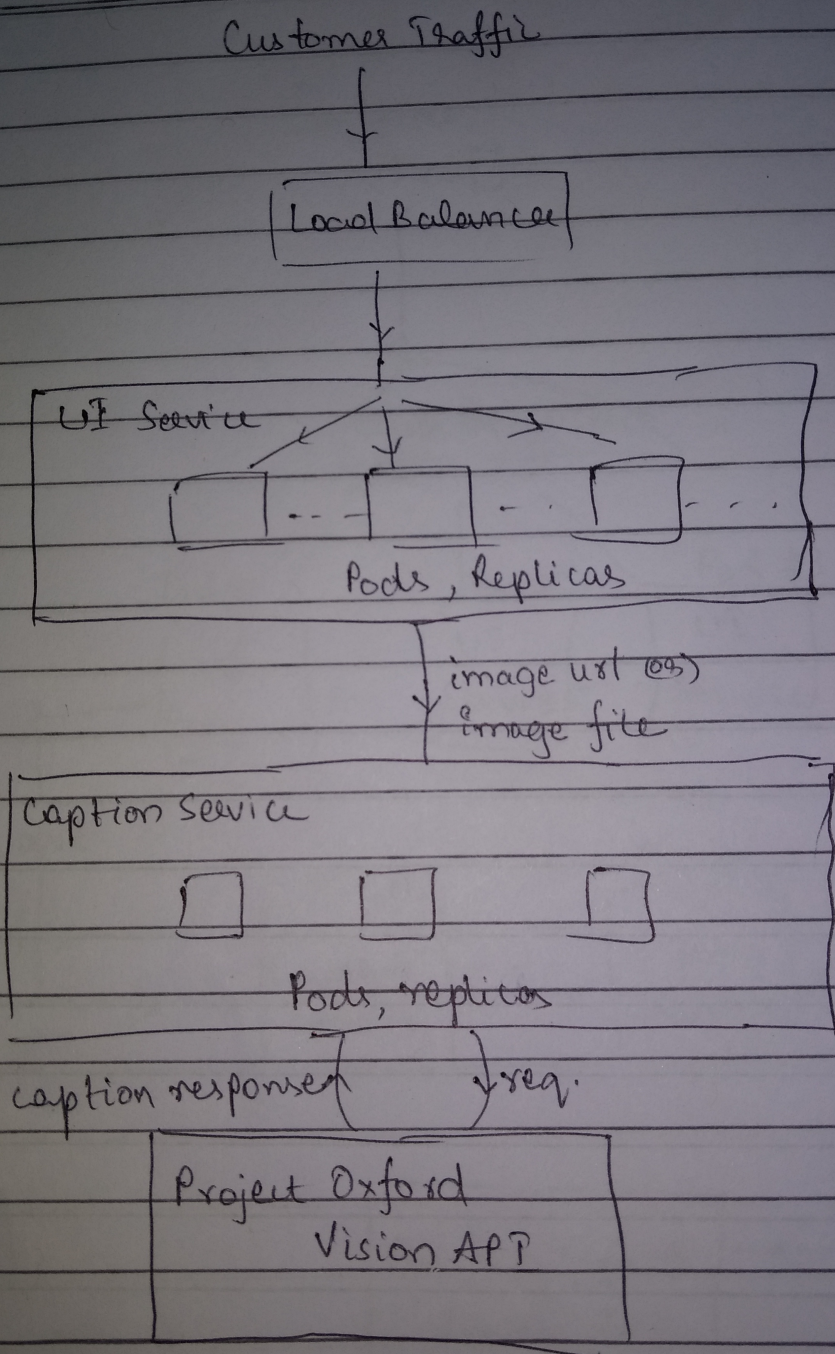 Customer Traffic
Load Balancer
UI Service
Pods, Replicas
image url (or)
image file
Caption Service
Pods, replicas
caption response
req.
Project Oxford
Vision API